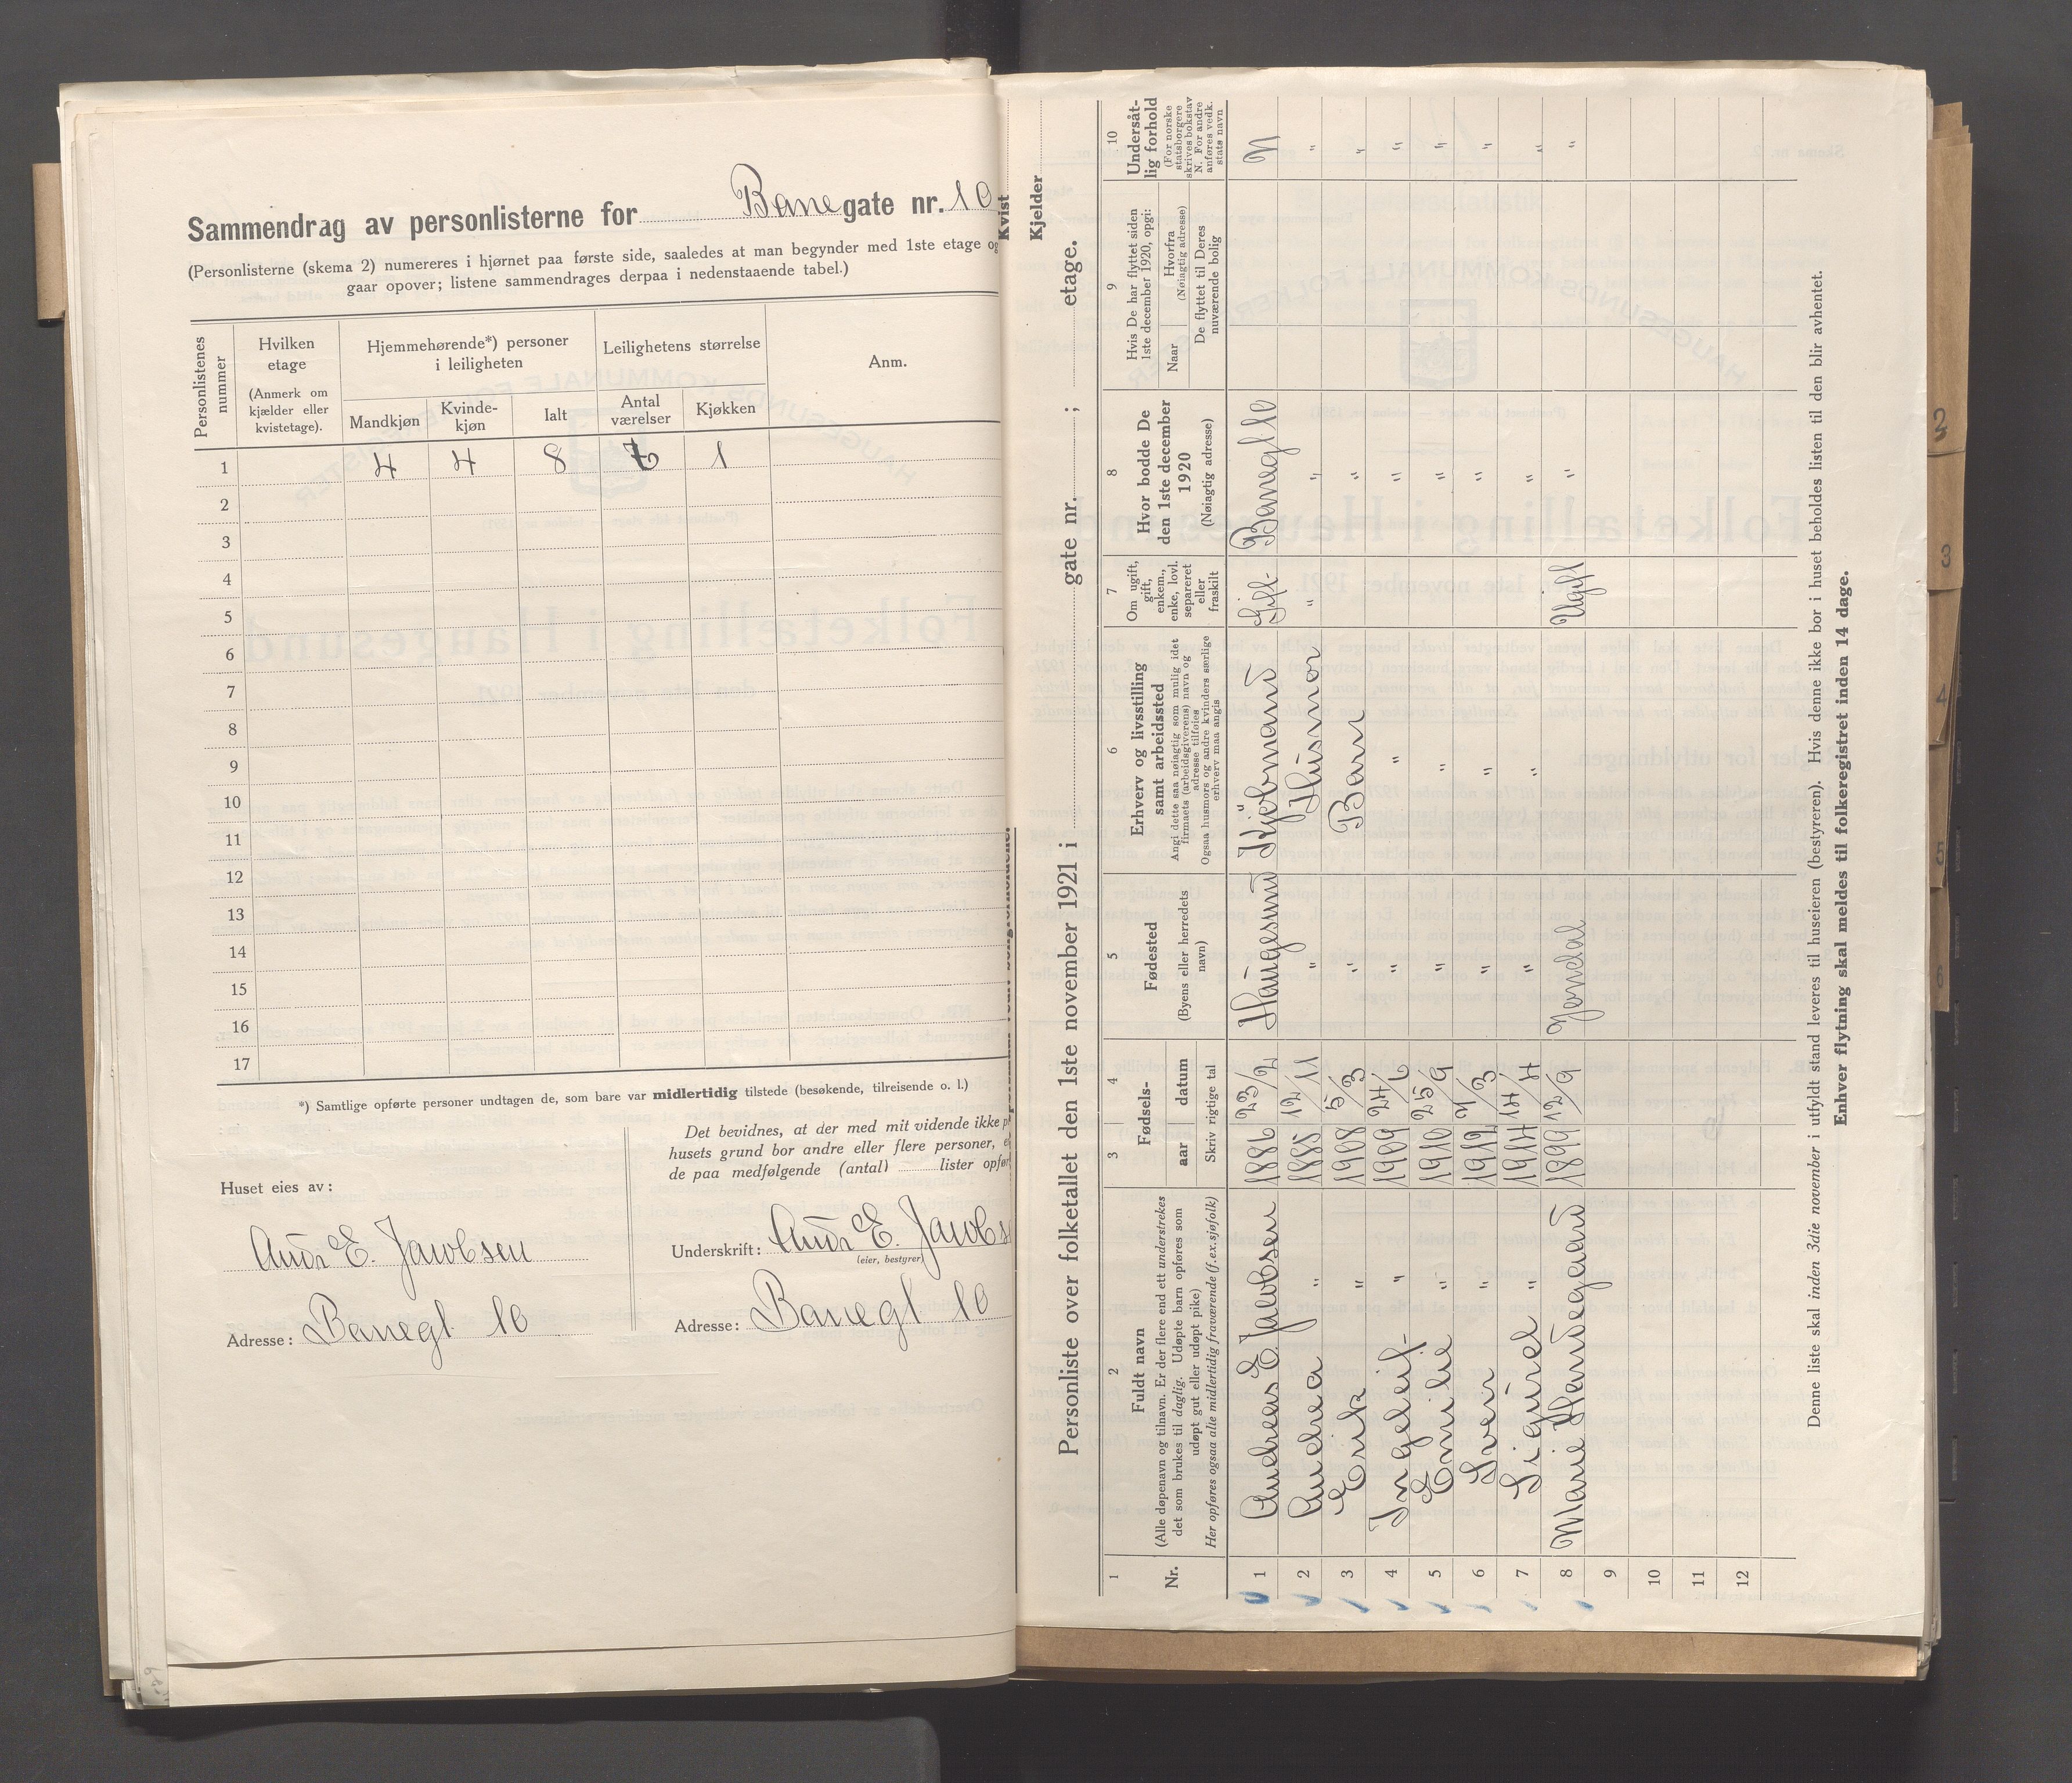 Sammendrag av personlisterne for Bane gate nr. 10
(Personlisterne (skema 2) numereres i hjørnet paa første side, saaledes at man begynder med 1ste etage og
gaar opover; listene sammendrages derpaa i nedenstaaende tabel.)
Personlistenes nummer
Hvilken etage
(Anmerk om kjælder eller kvistetage).
Hjemmehørende*) personer i leiligheten
Mandkjøn
Kvinde-kjøn
Ialt
Leilighetens størrelse
Antal værelser
Kjøkken
Anm.
1 4 4 8 7 1
2
3
4
5
6
7
8
9
10
11
12
13
14
15
16
17
*) Samtlige opførte personer undtagen de, som bare var midlertidig tilstede (besøkende, tilreisende o. l.)
Huset eies av:
Andr E. Jacobsen
Adresse: Banegt. 10
Det bevidnes, at der med mit vidende ikke p
husets grund bor andre eller flere personer, e
de paa medfølgende (antal) lister opfør
Underskrift: Andr E. Jacobs
(eier, bestyrer)
Adresse: Banegt 10
Kvist
Kjelder
Personliste over folketallet den 1ste november 1921 i gate nr. ; etage.
1
Nr.
2
Fuldt navn
(Alle døpenavn og tilnavn. Er der flere end ett understrekes
det som brukes til daglig. Udøpte barn opføres som
udøpt gut eller udøpt pike)
Her opføres ogsaa alle midlertidig fraværende (f.ex.sjøfolk)
3 4
Fødsels-
aar datum
Skriv rigtige tal
5
Fødested
(Byens eller herredets navn)
6
Erhverv og livsstilling
samt arbeidssted
Angi dette saa nøiagtig som mulig idet
firmaets (arbeidsgiverens) navn og
adresse tilføies
Ogsaa husmors og andre kvinders særlige
erhverv maa angis
7
Om ugift, gift, enkem., enke, lovl. separeret eller fraskilt
8
Hvor bodde De
den 1ste december
1920
(Nøiagtig adresse)
9
Hvis De har flyttet siden
1ste december 1920, opgi:
Naar
Hvorfra
(Nøiagtig adresse)
De flyttet til Deres
nuværende bolig
10
Undersåt-
lig forhold
(For norske
statsborgere
skrives bokstav
N. For andre
anføres vedk.
stats navn
1 Andreas E. Jacobsen 1886 23/2 Haugesund Kjøbmand Gift Banegt 10 N
2 Andrea " 1885 12/11 " Husmor " " "
3 Erik " 1908 5/3 " Barn " "
4 Ingeleif " 1909 24/6 " " " "
5 Emilie " 1910 25/9 " " " "
6 Sven " 1912 7/3 " " " "
7 Sigurd " 1914 14/4 " " " "
8 Marie Handegaard 1899 12/9 Jondal Ugift " "
9
10
11
12
Denne liste skal inden 3die november i utfyldt stand leveres til huseieren (bestyreren). Hvis denne ikke bor i huset beholdes listen til den blir avhentet.
Enhver flytning skal meldes til folkeregistret inden 14 dage.
2
3
4
5
6